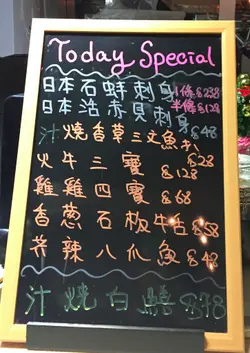 Today Special
日本石蚌刺身 1條 $238
日本活赤貝刺身 半條 $128
汁燒香草三文魚扒 $48
火牛三寶 $28
雞雞四寶 $128
香蔥石板牛舌 $68
芥辣八爪魚 $48
汁燒白鱔 $78